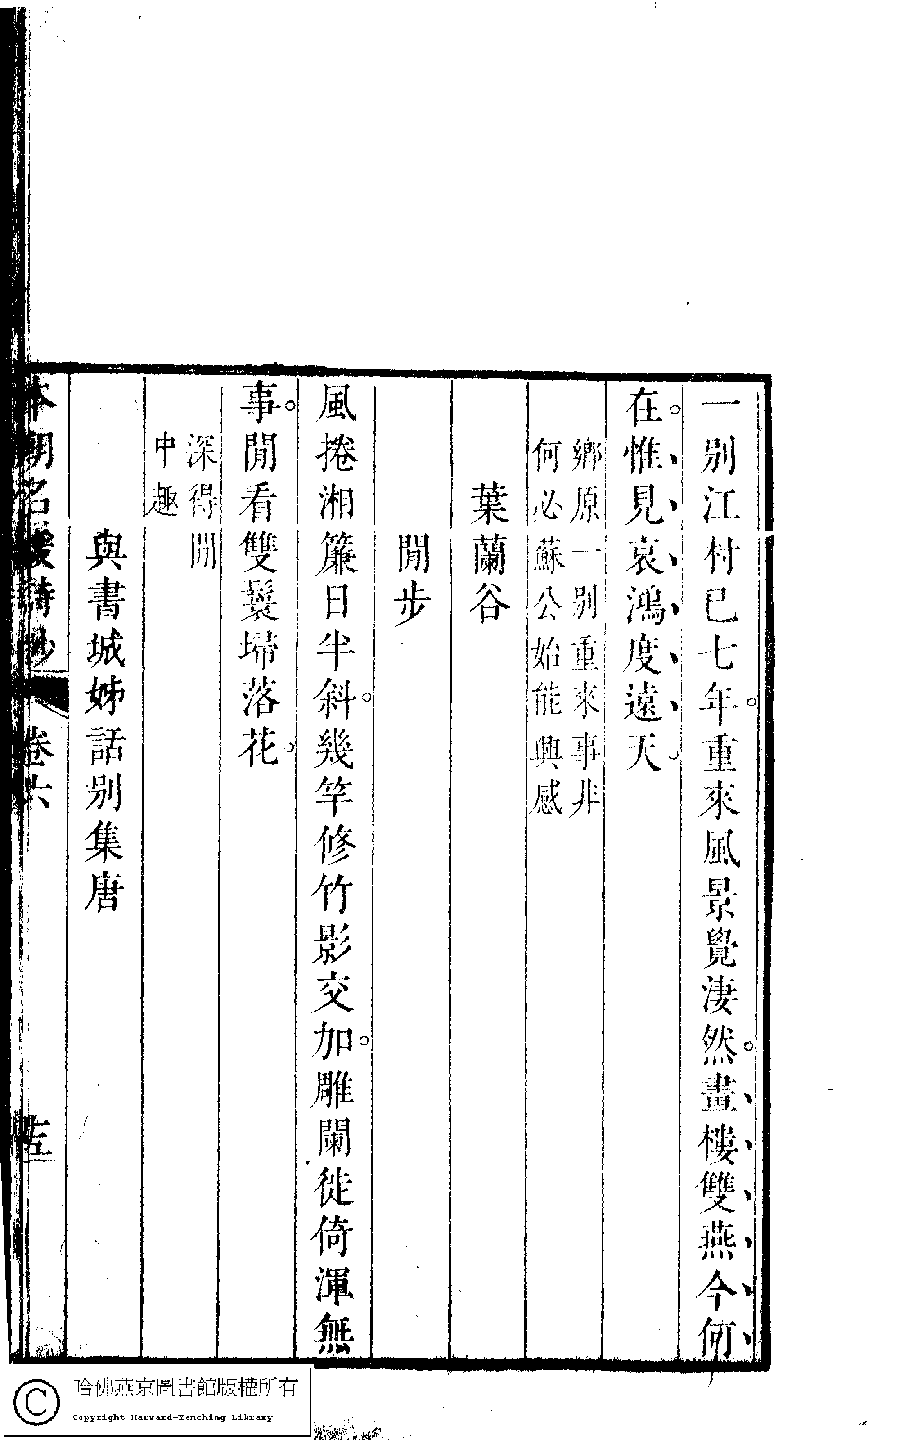 一別江村已七年重來風景覺淒然畫樓雙燕今何
在惟見哀鴻度遠天
鄉原一別重來事非
何必蘇公始能興感
葉蘭谷
閒步
風捲湘簾日半斜幾竿修竹影交加雕闌徙倚渾無
事閒看雙鬟埽落花
深得閒
中趣
與書城姊話別集唐
本朝名媛詩鈔
卷六
哈佛燕京圖書館版權所有
Copyright Harvard-Yenching Library